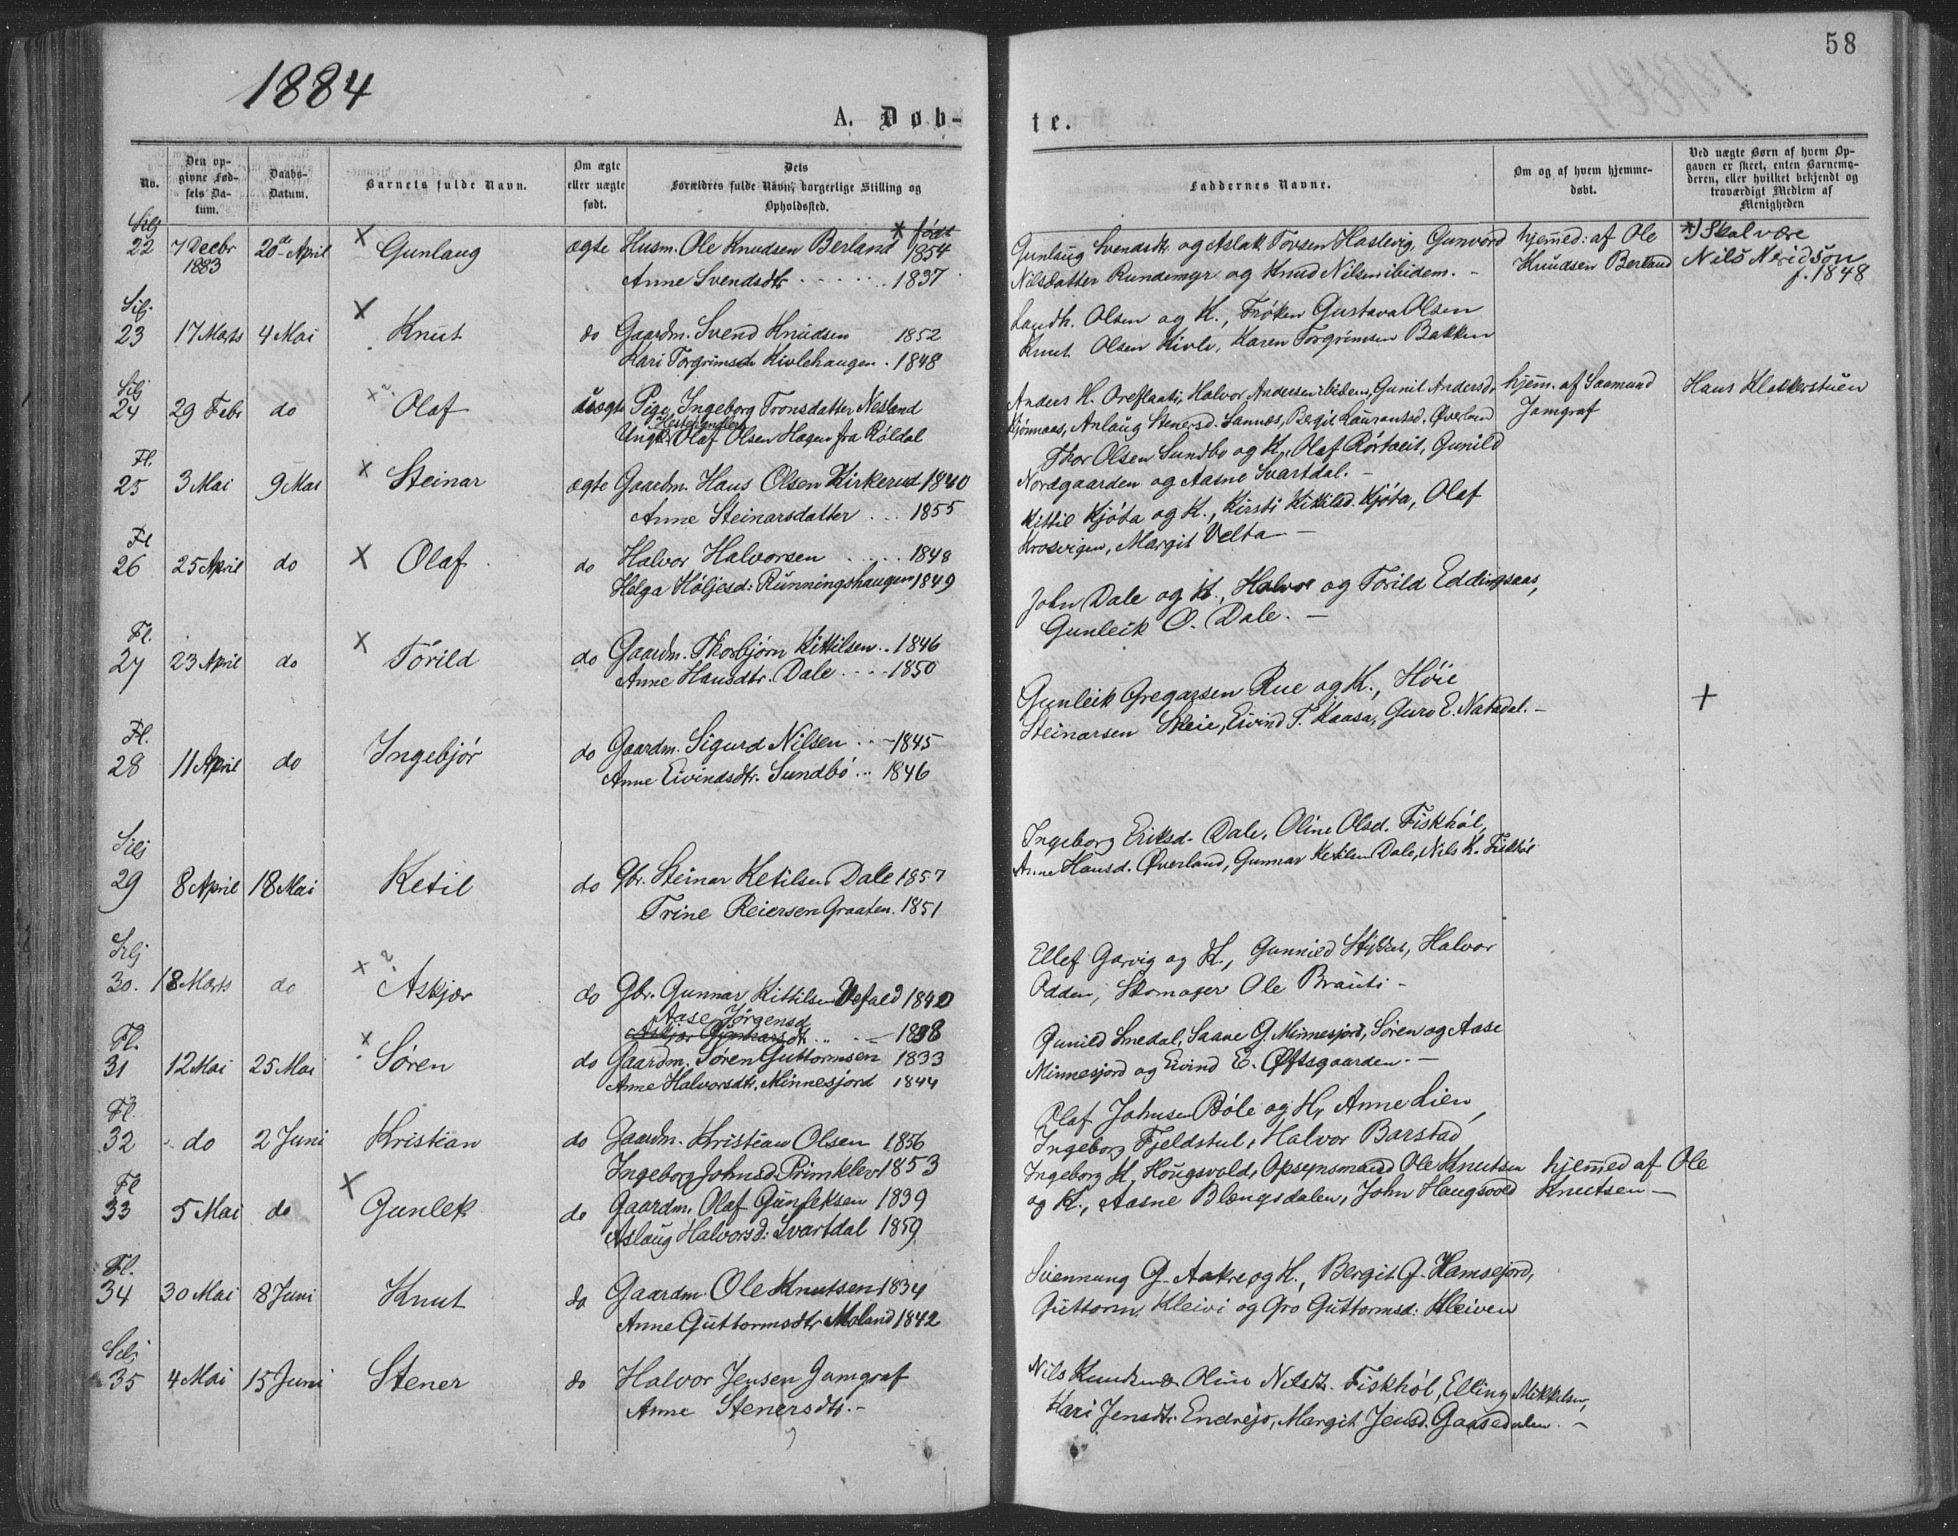 1884
58
A. Døb-
te.
No.
Den op-
givne Fød-
sels Da-
tum.
Daabs-
Datum.
Barnets fulde Navn.
Om ægte
eller uægte
født.
Dets
Forældres fulde Navn, borgerlige Stilling og
Opholdssted.
Faddernes Navne.
Om og af hvem hjemme-
døbt.
Ved uægte Børn af hvem Op-
gaven er skeet, enten Barnemo-
deren, eller hvilket bekjendt og
troværdigt Medlem af
Menigheden
Silj
22 7 Decbr 1883 20de April × Gunlaug ægte Husm. Ole Knudsen Berland × født 1854
Anne Svendsdtr 1837
Gunlaug Svendsdtr. og Aslak Torsen Haslevig, Gunvord
Nilsdatter Rundemyr og Knud Nilsen ibidem. -
hjemmed: af Ole
Knudsen Berland
×) Skal være
Nils Neridson
f. 1848
Silj.
23 17 Marts 4 Mai × Knut do Gaardm. Svend Knudsen 1852
Kari Torgrimsd Kivlehaugen. 1848
Landh. Olsen og K., Frøken Gustava Olsen
Knut Olsen Kivle, Karen Torgrimsen Bakken
Silj
24 29 Febr do ×? Olaf uægte Pige Ingeborg Tronsdatter Nesland
Hestehandler
Ungk. Olaf Olsen Hagen fra Røldal
Anders K. Oreflaati, Halvor Andersen ibidem, Gunil Andersdr
Kjønnaas, Anlaug Stenersd. Sannæs, Bergit Laurantsd. Øverland
hjem. af Saamund
Jamgraf
Hans Klokkerstuen
Fl.
25 3 Mai 9 Mai × Steinar ægte Gaardm. Hans Olsen Kirkerud 1840
Anne Steinarsdatter 1855
Thor Olsen Sundbo og K., Olaf Rørtveit, Gunild
Nordgaarden og Aasne Svartdal. -
Fl
26 25 April do × Olaf do Halvor Halvorsen 1848
Helga Høljesd: Rünningshaugen 1849
Kittil Kjøta og K., Kirsti Kittilsd. Kjøta, Olaf
Krosvigen, Margit Velta -
Fl.
27 23 April do × Torild do Gaardm. Thorbjørn Kittilsen 1846
Anne Hansdtr. Dale 1850
John Dale og K., Halvor og Torild Eddingsaas,
Gunleik O. Dale. -
Fl.
28 11 April do Ingebjør do Gaardm. Sigurd Nilsen 1845
Anne Eivindsdtr. Sundbö 1846
Gunleik Gregarsen Rue og K., Høie
Steinarsen Skeie, Eivind T. Kaasa, Guro E. Natadal. -
+
Silj
29 8 April 18 Mai Ketil do Gbr. Steinar Ketilsen Dale 1857
Trine Reiersen Graaten. 1851
Ingeborg Eriksd. Dale, Oline Olsd. Fiskhøl,
Anne Hansd. Øverland, Gunnar Ketilsen Dale, Nils K. Fiskhøl
Silj
30. 18 Marts do ×? Askjær do Gbr. Gunnar Kittilsen Vefald 1840
Aase Jørgensd
1838
Ellef Garvig og K., Gunnild Stykket, Halvor
Odden, Skomager Ole Brauti -
Fl.
31 12 Mai 25 Mai × Søren do Gaardm. Søren Guttormsen 1833
Anne Halvorsdtr. Minnesjord 1844
Gunild Smedal, Saave G. Minnesjord, Søren og Aase
Minnesjord og Eivind E. Øftsgaarden. -
Fl.
32 do 2 Juni Kristian do Gaardm. Kristian Olsen 1856
Ingeborg Johnsd. Brinklev 1853
Olaf Johnsen Bøle og K., Anne Lien,
Ingeborg Fjeldstul, Halvor Barstad
Fl
33 5 Mai do × Gunlek do Gaardm. Olaf Gunleksen 1839
Aslaug Halvorsd: Svartdal 1859
Ingeborg K. Hougsvold, Opsynsmand Ole Knutsen
og K., Aasne Blengsdalen, John Haugsvold
hjemmed af Ole
Knutsen -
Fl.
34 30 Mai 8 Juni Knut do Gaardm. Ole Knutsen 1834
Anne Guttormsdtr Moland 1842
Svennung G. Aakre og K., Bergit G. Hamsejord,
Guttorm Kleivi og Gro Guttormsd: Kleiven
Silj
35 4 Mai 15 Juni Stener do Halvor Jensen Jamgraf
Anne Stenersdtr. -
Nils Knudsen & Oline Nilsdtr. Fiskhøl, Elling Mikkelsen,
Kari Jensdtr. Endrejo, Margit Jensd. Gaasedalen. -